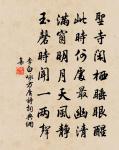 聖寺閑栖睡眼醒
此時何處最幽清
滿窗明月天風靜
玉磬時聞一兩聲
李白詠方廣詩詞典網